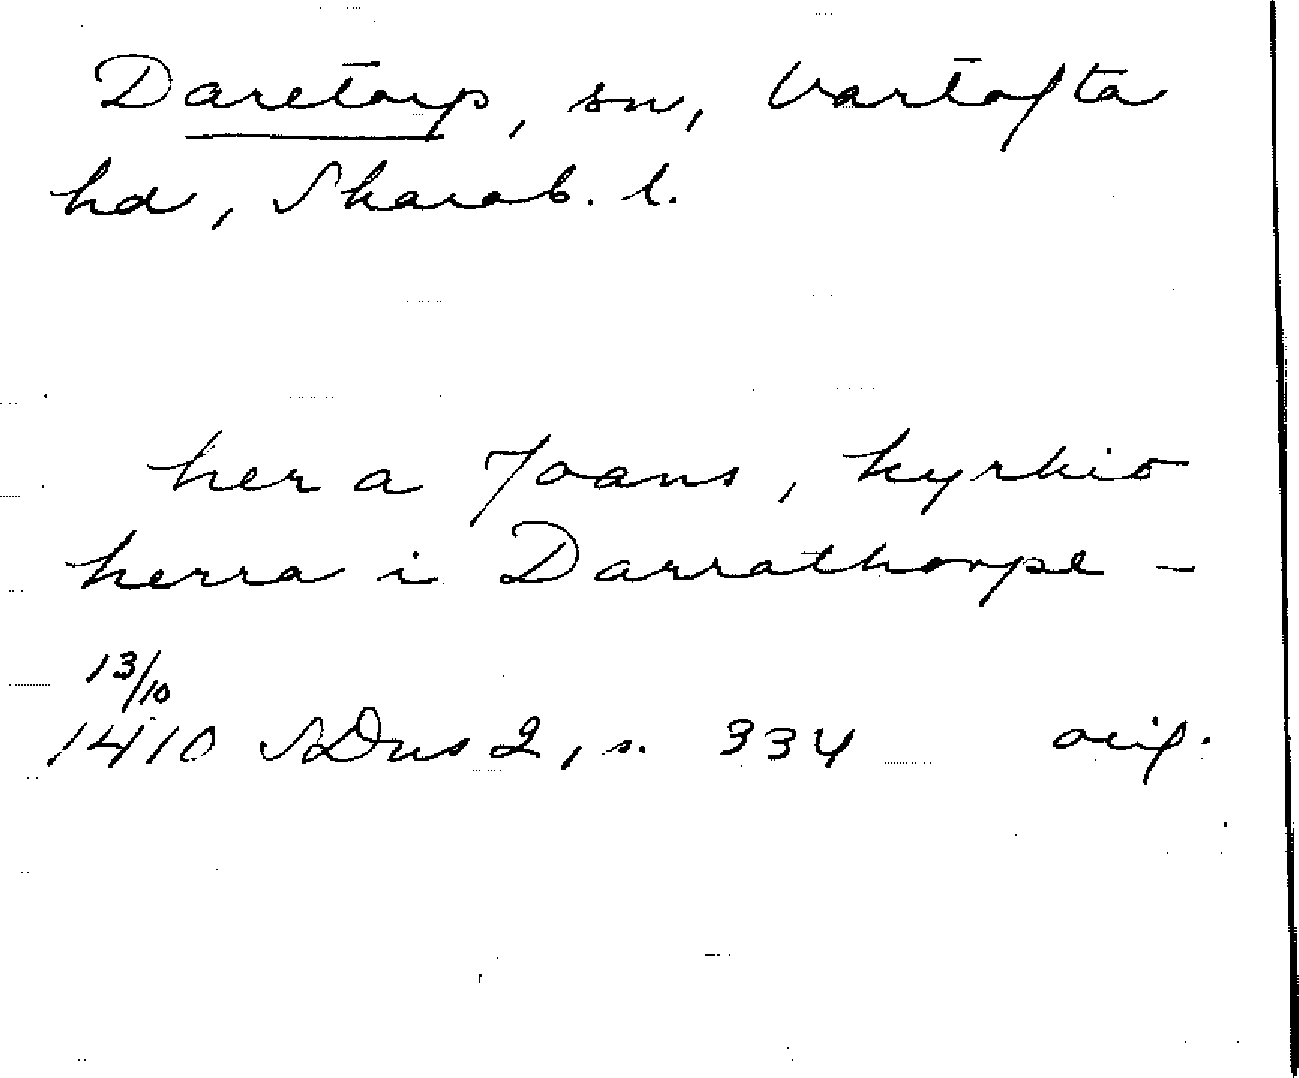 Daretorp, sn, Vartofta
hd, Skarab. l.
hera Joans, kyrkio
herra i Darrathorpe -
13/10
1410 SDns 2, s. 334 orig.